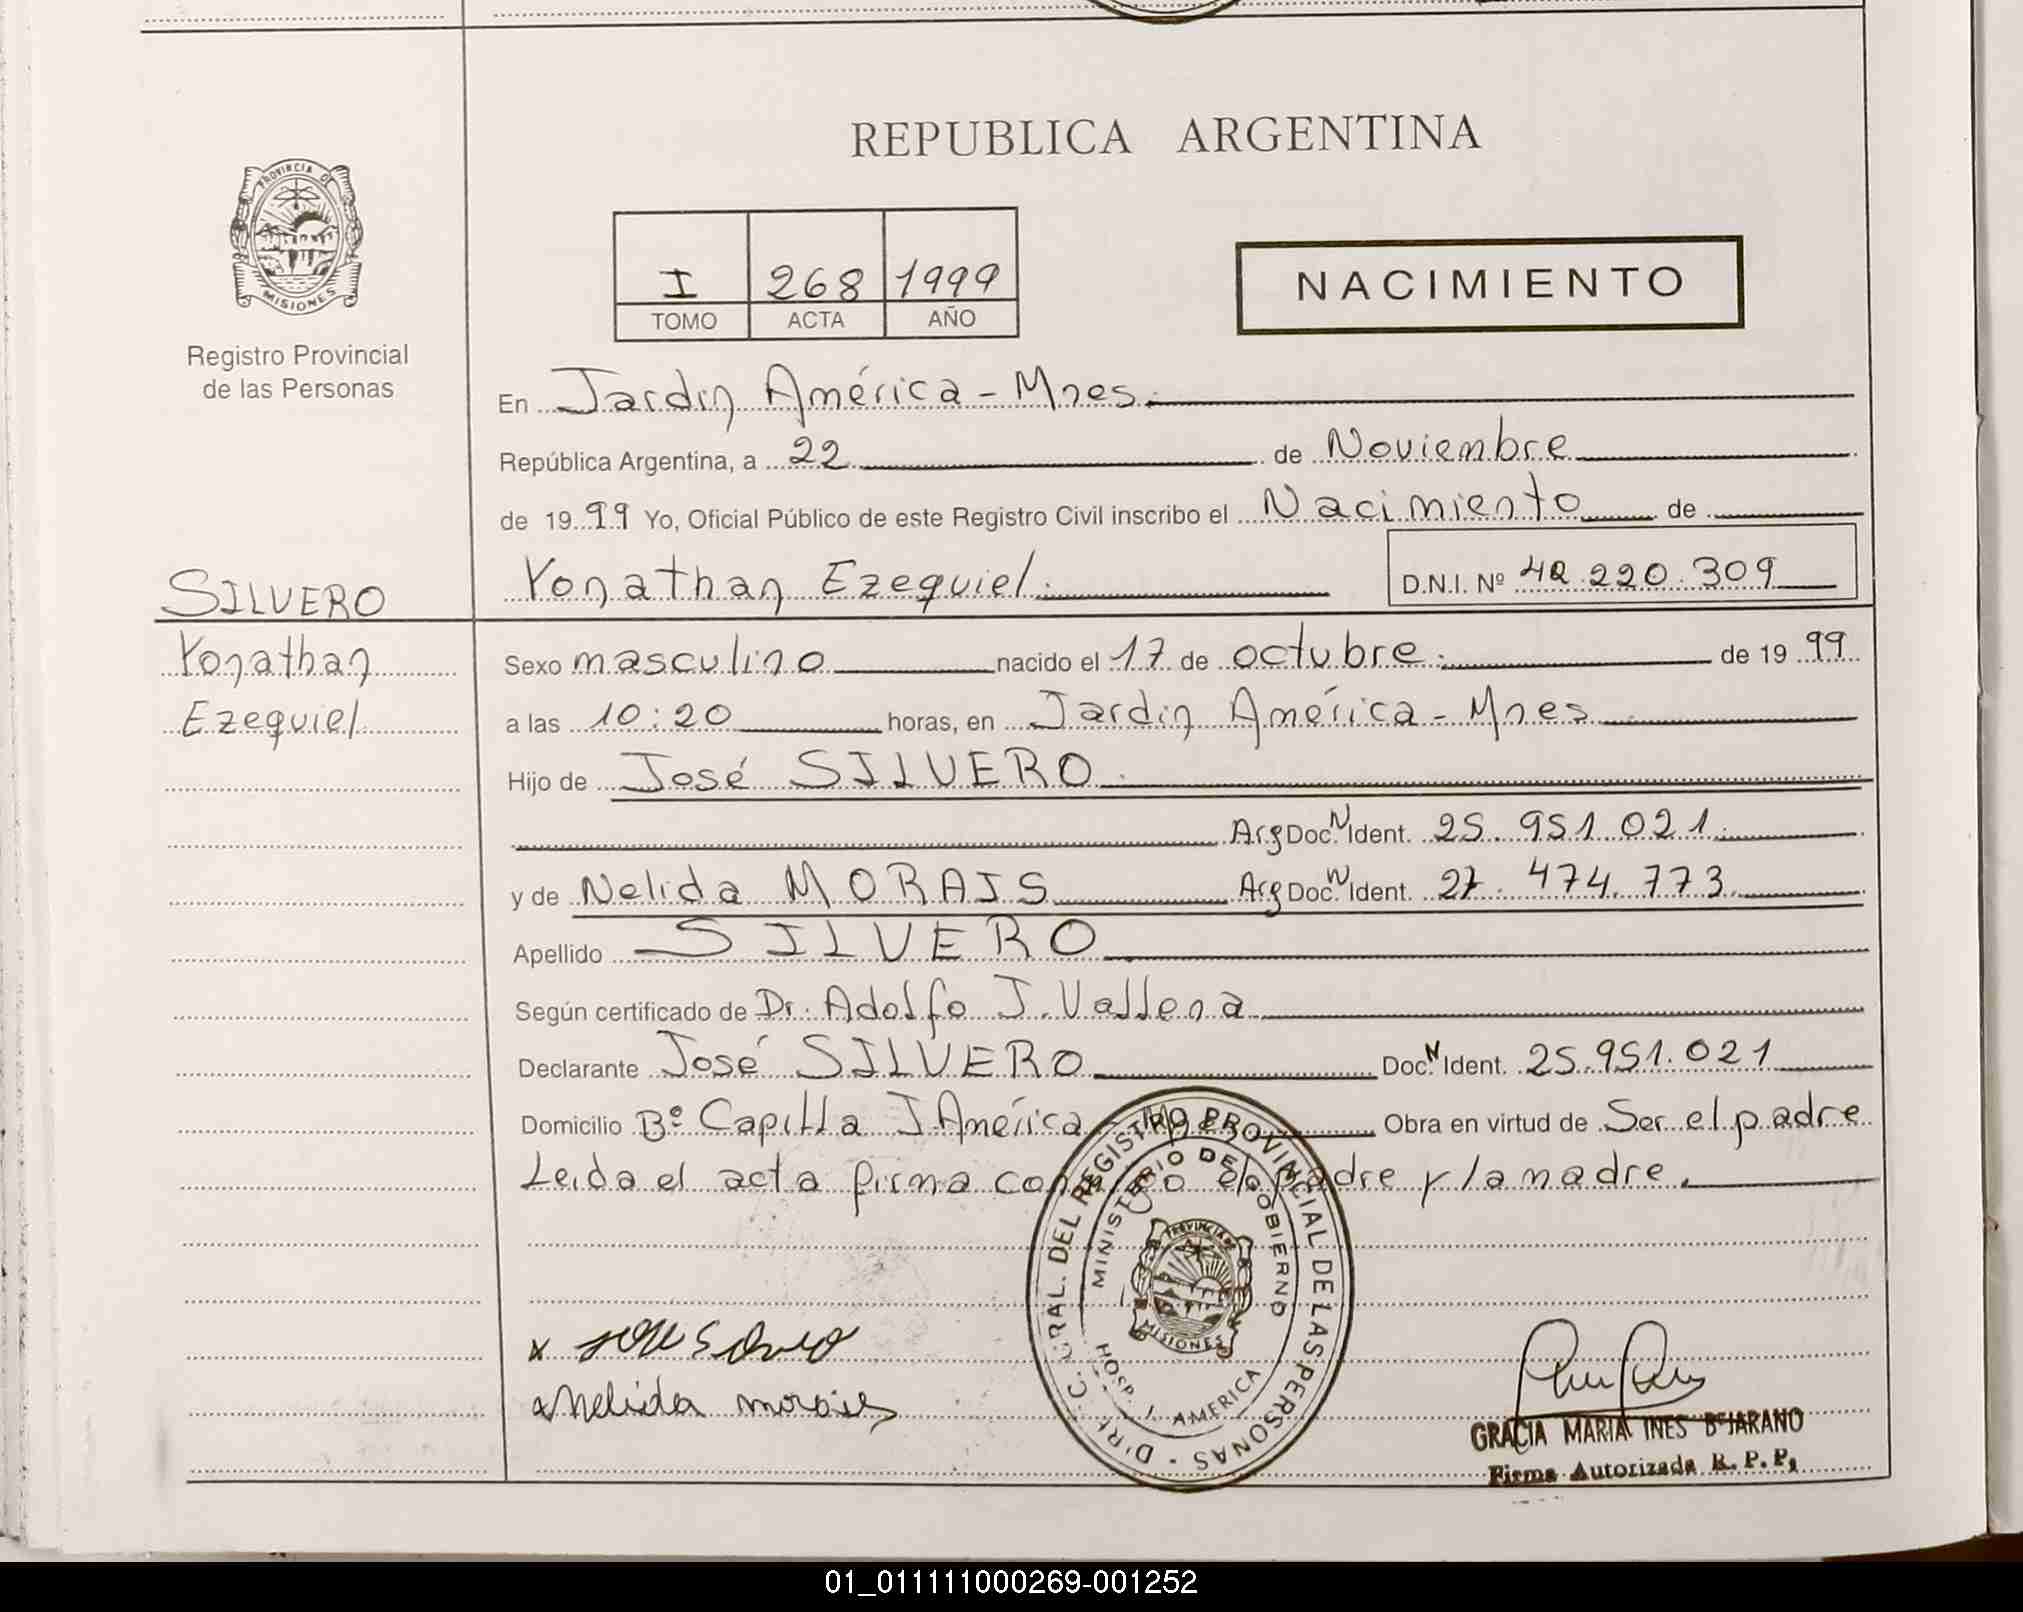 REPUBLICA ARGENTINA
PROVINCIA DE
MISIONES
Registro Provincial
de las Personas
I 268 1999
TOMO ACTA AÑO
NACIMIENTO
En Jardin América - Mnes.
República Argentina, a 22 de Noviembre
de 1999 Yo, Oficial Público de este Registro Civil inscribo el Nacimiento de
SILVERO
Yonathan Ezequiel. D.N.I. Nº 42.220.309
Yonathan
Ezequiel
Sexo masculino nacido el 17 de octubre. de 1999
a las 10:20 horas, en Jardin América - Mnes
Hijo de José SILVERO.
Arg Doc. N Ident. 25.951.021.
y de Nelida MORAIS Arg Doc. N Ident. 27.474.773.
Apellido SILVERO
Según certificado de Dr. Adolfo J. Vallena
Declarante José SILVERO Doc. N Ident. 25.951.021
Domicilio Bº Capilla J. América - Mnes Obra en virtud de Ser el padre
Leida el acta firma conmigo el padre y la madre.
D'RE. C. GRAL. DEL REGISTRO PROVINCIAL DE LAS PERSONAS
MINISTERIO DE GOBIERNO
PROVINCIA DE
MISIONES
HOSP. J. AMERICA
x
x Nelida morais
GRACIA MARIA INES BEJARANO
Firma Autorizada R. P. P.
01_011111000269-001252